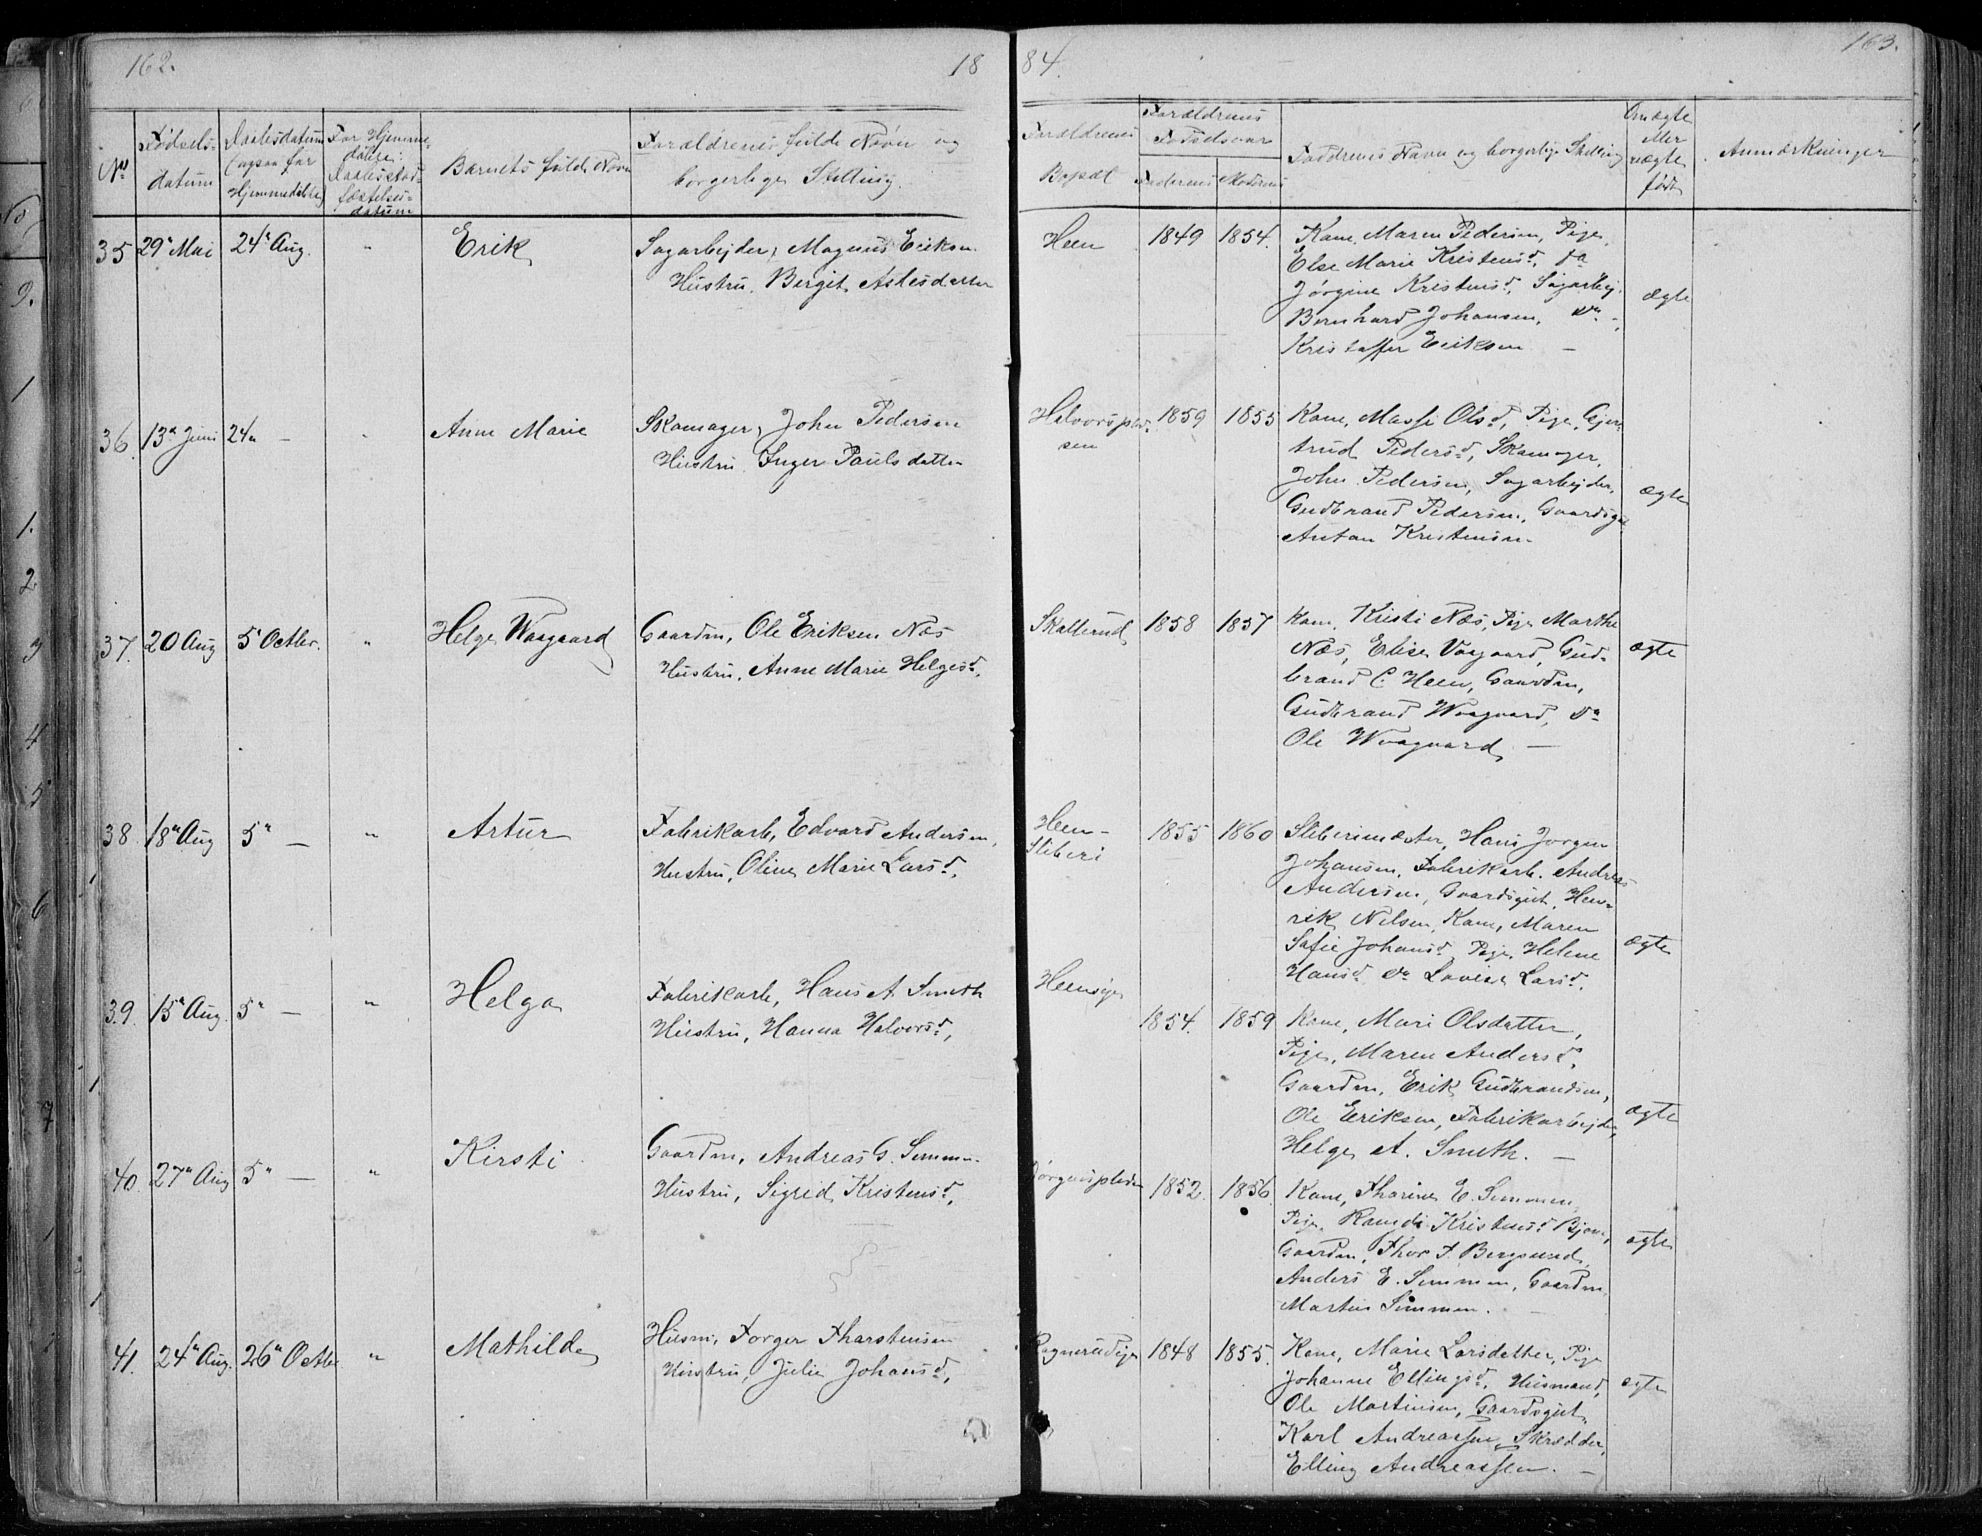 162.
18
84.
163.
No
Fødsels-
datum
Daabsdatum
(ogsaa for
Hjemmedøbte)
For Hjemme-
døbte:
Daabsstad-
fæstelses-
datum
Barnets fulde Navn
Forældrenes fulde Navn og
borgerlige Stilling.
Forældrenes
Bopæl
Forældrenes
Fødselsaar
Faderens Moderens
Faddrenes Navn og borgerlige Stilling
Om ægte
eller
uægte
født
Anmærkninger
35 29n Mai 24n Aug. " Erik
Sagarbejder, Magnus Eriksen
Hustru, Bergit Aslesdatter
Heen 1849 1854.
Kone, Maren Pedersen, Pige,
Else Marie Kristensd, do
Jørgine Kristensd, Sagarbej.
Bernhard Johansen, do -,
Kristoffer Eriksen —
ægte
36. 13n Juni 24n — " Anne Marie
Skomager, John Pedersen
Hustru, Inger Paulsdatter
Halvorsplad-
sen
1859 1855
Kone, Masse Olsd, Pige, Gjer-
trud Pedersd, Skomager,
John Pedersen, Sagarbejder,
Gudbrand Pedersen, Gaardsgut
Anton Kristensen.
ægte
37. 20 Aug 5n Octbr. " Helge Waagaard
Gaardm, Ole Eriksen Næs
Hustru, Anne Marie Helgesd,
Skollerud 1858 1857
Kone, Kristi Næs, Pige Marthe
Næs, Elise Vaagaard, Gud-
brand C. Heen, Gaardm,
Gudbrand Waagaard, do
Ole Waagaard —
ægte
38. 18n Aug 5n — " Artur
Fabrikarb, Edvard Andersen,
Hustru, Oline Marie Larsd,
Heen-
Sliberi
1855 1860
Sliberimester, Hans Jørgen
Johansen, Fabrikarb. Andreas
Andersen, Gaardsgut, Hen-
rik Nilsen, Kone, Maren
Sofie Johansd, Pige, Helene
Hansd, do Lovise Larsd,
ægte
39. 15n Aug. 5n — " Helga
Fabrikarb, Hans A. Smeth
Hustru, Hanna Halvorsd,
Heensige
1854. 1859
Kone, Mari Olsdatter,
Pige, Maren Andersd,
Gaardm, Erik Gudbrandsen,
Ole Eriksen, Fabrikarbejder,
Helge A. Smeth. —
ægte
40. 27n Aug 5n — " Kirsti
Gaardm, Andreas G. Semmen
Hustru, Sigrid Kristensd,
Jørgenspladsen 1852. 1856
Kone, Thorine E. Semmen
Pige, Randi Kristensd Bjone,
Gaardm, Thor T. Bergsund,
Anders E. Semmen, Gaardm,
Martin Semmen. —
ægte
41. 24n Aug. 26n Octbr " Mathilde
Husm, Torger Tharstensen
Hustru, Julie Johansd,
Ragnerudeje 1848 1855.
Kone, Marie Larsdatter, Pige
Johanne Ellingsd, Husmand,
Ole Martinsen, Gaardsgut,
Karl Andreassen, Skrædder,
Elling Andreassen. —
ægte